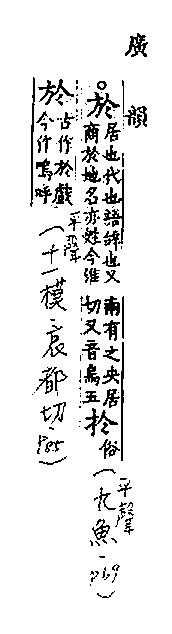 廣韻
。於居也代也語辭也又
商於地名亦姓今淮
南有之央居
切又音烏五於俗
(平聲九魚-P69)
於古作於戲
今作嗚呼
平聲
(十一模-哀都切-P85)